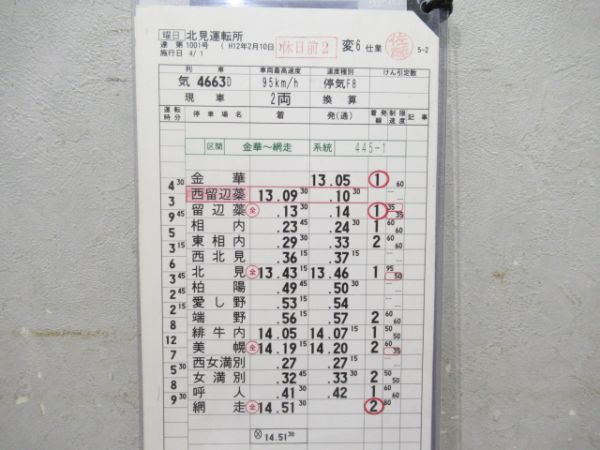 曜日 北見運転所
達 第1001号 ( H12年2月10日 ) 休日前2 変6 仕業 佐藤 5-2
施行日 4/1
列車 車両最高速度 速度種別 けん引定数
気 4663D 95km/h 停気F8
現車 2両 換算
運転時分 停車場名 着 発(通) 着発線 制限速度 記事
区間 金華～網走 系統 445-1
金華 13.05 1 60
4 30
西留辺蘂 13.09 30 .10 30
3
留辺蘂 全 .13 30 .14 1 35 35
9 45
相内 .23 45 .24 30 1 60
5
東相内 .29 30 .33 2 60 60
3 15
西北見 .36 15 .37 15
6
北見 全 13.43 15 13.46 1 95 50
3 45
柏陽 .49 45 .50 30
2 30
愛し野 .53 .54
2 15
端野 .56 15 .57 2 60 60
8
緋牛内 14.05 14.07 15 1 50 50
12
美幌 全 14.19 15 14.20 2 60 35
7 15
西女満別 .27 15 .28
4 45
女満別 .32 45 .33 30 2 50 50
8
呼人 .41 30 .42 1 60
9 30
網走 全 14.51 30 2 60
14.51 30